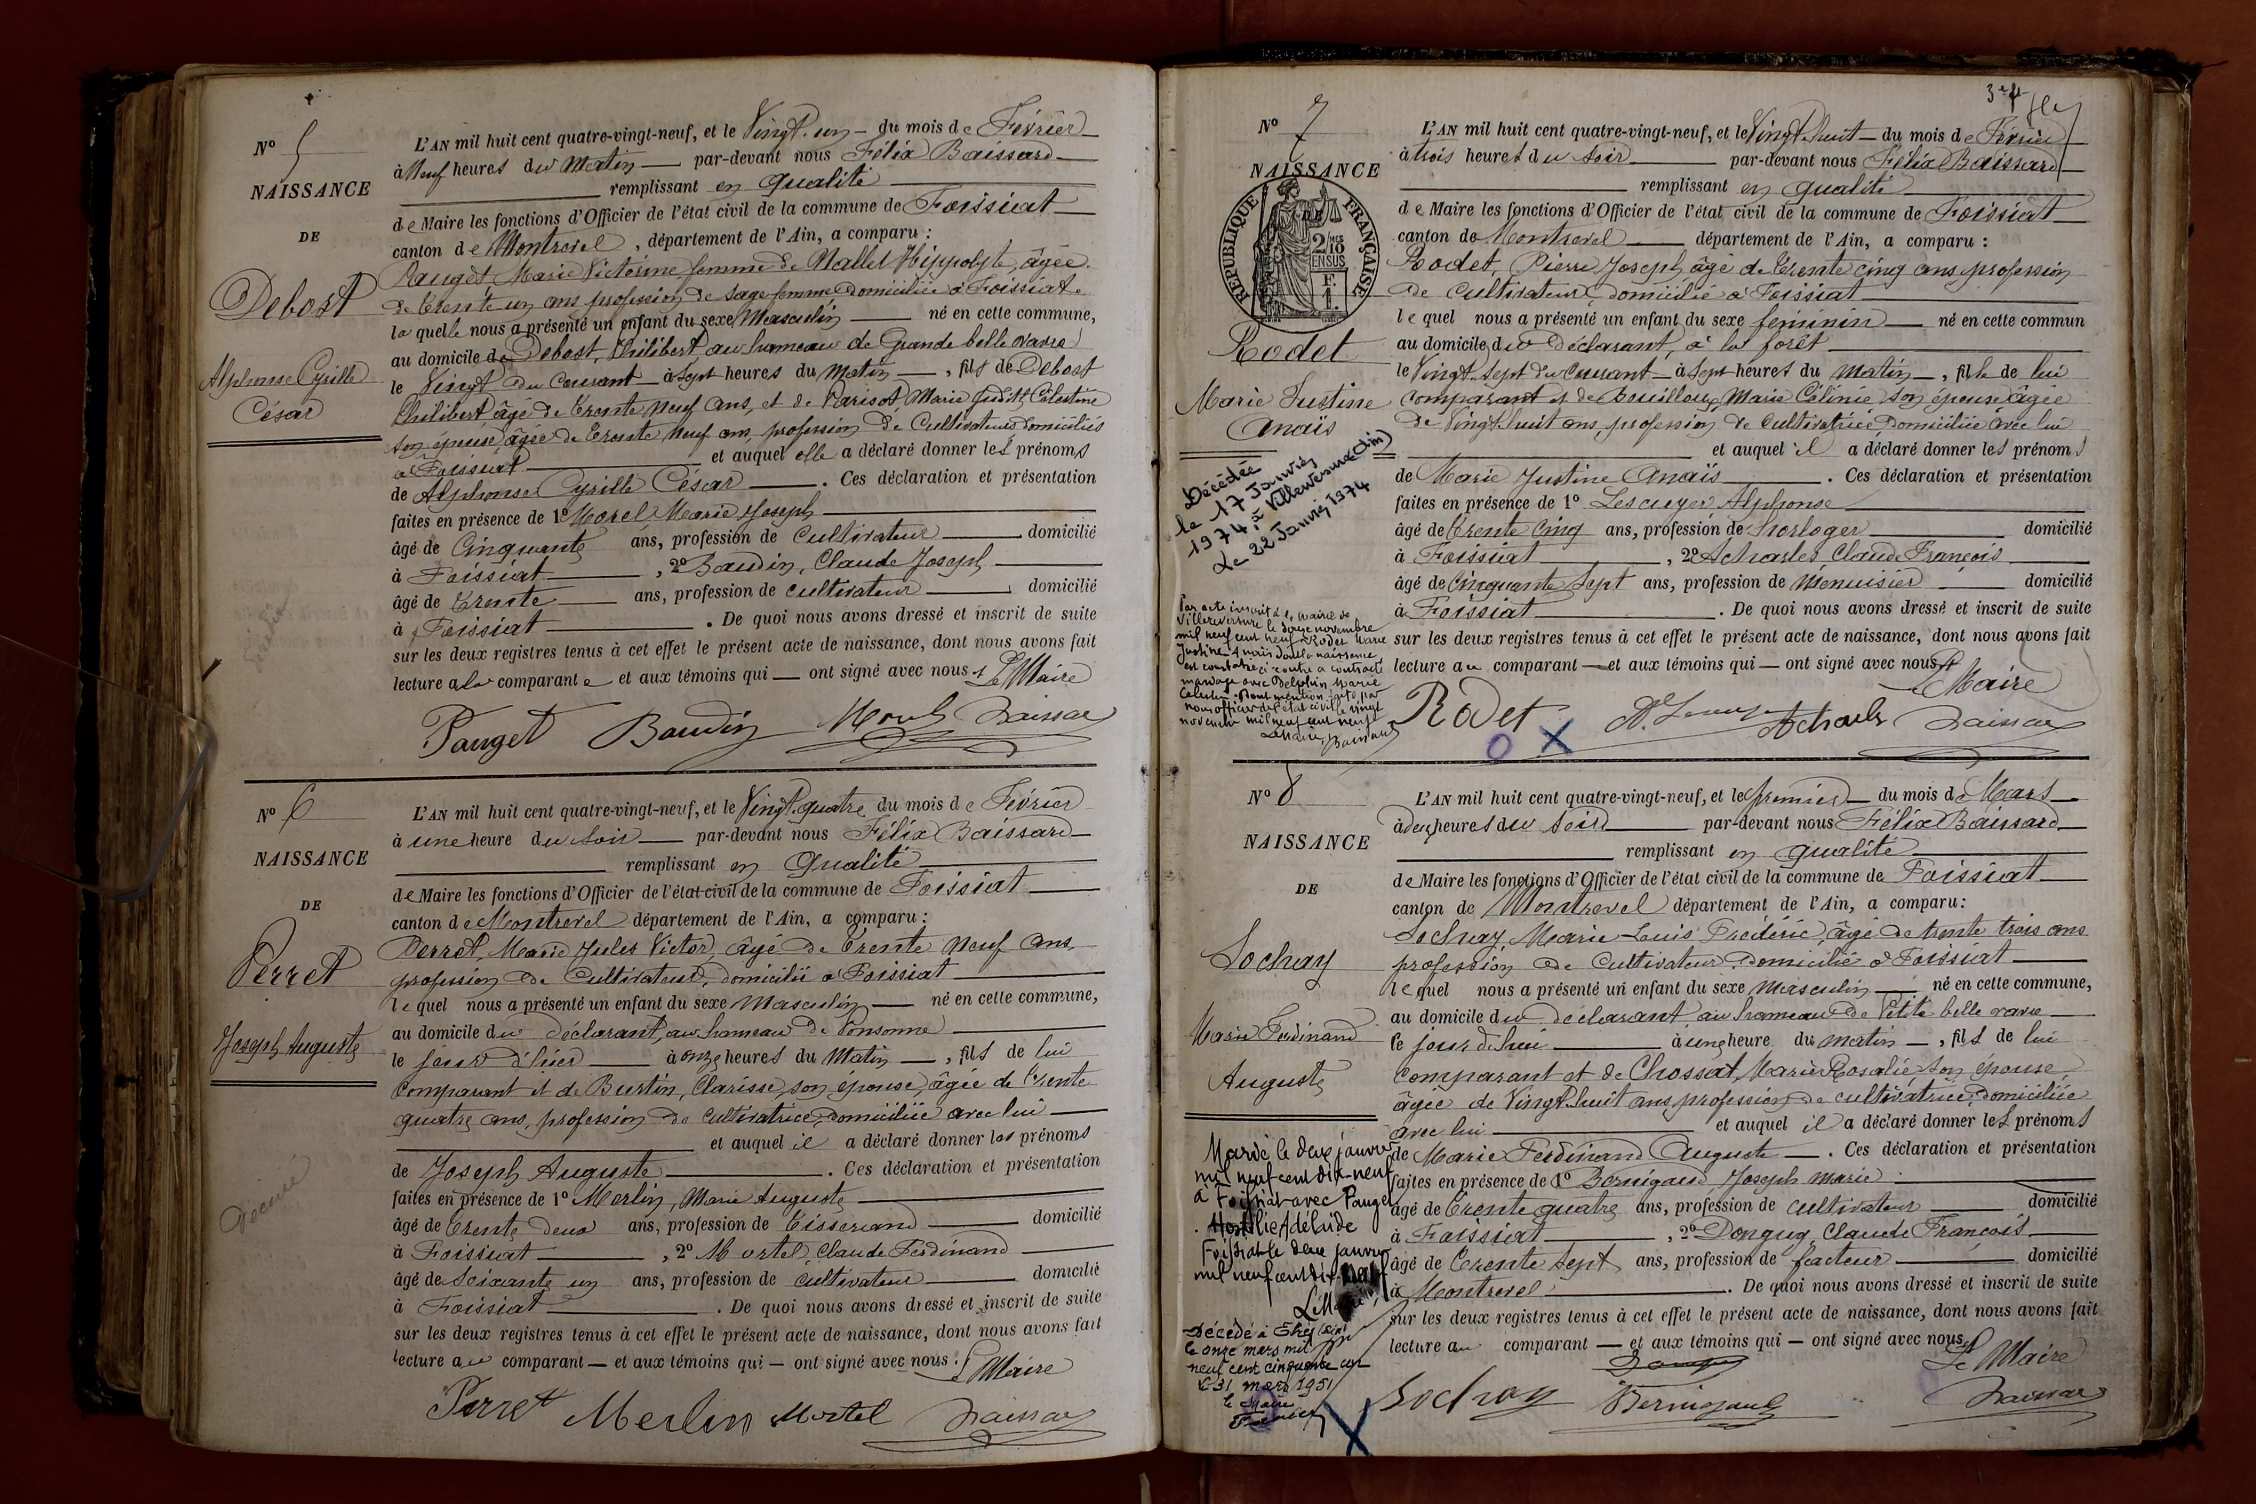 N° 5
NAISSANCE
DE
Debost
Alphonse Cyrille
César
L'AN mil huit cent quatre-vingt-neuf, et le Vingt-un du mois de Février
à Neuf heures du Matin par-devant nous Félix Baissard
remplissant en qualité
de Maire les fonctions d'Officier de l'état civil de la commune de Foissiat
canton de Montrevel, département de l'Ain, a comparu :
Pauget Marie Victorine femme de Mallet Hippolyte, âgée
de trente un ans profession de sage femme domiciliée à Foissiat
laquelle nous a présenté un enfant du sexe Masculin né en cette commune,
au domicile de Debost, Philibert au hameau de Grande belle vavre
le Vingt du courant à Sept heures du Matin, fils de Debost
Philibert âgé de trente neuf ans, et de Parisot, Marie Judith Célestine
son épouse âgée de trente neuf ans, profession de Cultivateurs domiciliés
à Foissiat et auquel elle a déclaré donner les prénoms
de Alphonse Cyrille César. Ces déclaration et présentation
faites en présence de 1° Morel Marie Joseph
âgé de Cinquante ans, profession de Cultivateur domicilié
à Foissiat, 2° Baudin, Claude Joseph
âgé de trente ans, profession de cultivateur domicilié
à Foissiat. De quoi nous avons dressé et inscrit de suite
sur les deux registres tenus à cet effet le présent acte de naissance, dont nous avons fait
lecture a la comparante et aux témoins qui ont signé avec nous. Le Maire
Pauget Baudin Morel Baissard
N° 6
NAISSANCE
DE
Perret
Joseph Auguste
L'AN mil huit cent quatre-vingt-neuf, et le Vingt-quatre du mois de Février
à une heure du soir par-devant nous Félix Baissard
remplissant en qualité
de Maire les fonctions d'Officier de l'état civil de la commune de Foissiat
canton de Montrevel département de l'Ain, a comparu :
Perret, Marie Jules Victor, âgé de trente neuf ans,
profession de Cultivateur, domicilié à Foissiat
lequel nous a présenté un enfant du sexe Masculin né en cette commune,
au domicile du déclarant, au hameau de Ponsonne
le jour d'hier à onze heures du Matin, fils de lui
Comparant et de Burtin, Clarisse, son épouse, âgée de trente
quatre ans, profession de cultivatrice, domiciliée avec lui
et auquel il a déclaré donner les prénoms
de Joseph Auguste. Ces déclaration et présentation
faites en présence de 1° Merlin, Marie Auguste
âgé de trente deux ans, profession de Tisserand domicilié
à Foissiat, 2° Mortel, Claude Ferdinand
âgé de Soixante un ans, profession de cultivateur domicilié
à Foissiat. De quoi nous avons dressé et inscrit de suite
sur les deux registres tenus à cet effet le présent acte de naissance, dont nous avons fait
lecture au comparant et aux témoins qui ont signé avec nous. Le Maire
Perret Merlin Mortel Baissard
N° 7
NAISSANCE
REPUBLIQUE FRANÇAISE
2/10 EN SUS
F. 1.
Rodet
Marie Justine
Anaïs
Décédée
le 17 Janvier
1974, à Villereversure (Ain)
Le 22 Janvier 1974
Par acte inscrit à la mairie de
Villereversure le douze novembre
mil neuf cent neuf Rodet Marie
Justine Anaïs dont la naissance
est constatée ci contre a contracté
mariage avec Delphin Marie
Célestin. Dont mention faite par
nous officier de l'état civil le vingt
novembre mil neuf cent neuf
Le Maire, Baissard
L'AN mil huit cent quatre-vingt-neuf, et le Vingt-huit du mois de Février
à trois heures du soir par-devant nous Félix Baissard
remplissant en qualité
de Maire les fonctions d'Officier de l'état civil de la commune de Foissiat
canton de Montrevel département de l'Ain, a comparu :
Rodet, Pierre Joseph âgé de trente cinq ans profession
de Cultivateur, domicilié à Foissiat
lequel nous a présenté un enfant du sexe féminin né en cette commun
au domicile du déclarant, à la forêt
le Vingt-sept du courant à Sept heures du Matin, fille de lui
comparant et de Bouilloux, Marie Célinie son épouse âgée
de Vingt-huit ans, profession de cultivatrice domiciliée avec lui
et auquel il a déclaré donner les prénoms
de Marie Justine Anaïs. Ces déclaration et présentation
faites en présence de 1° Lescuyer, Alphonse
âgé de trente cinq ans, profession de horloger domicilié
à Foissiat, 2° Acharles Claude François
âgé de cinquante sept ans, profession de Menuisier domicilié
à Foissiat. De quoi nous avons dressé et inscrit de suite
sur les deux registres tenus à cet effet le présent acte de naissance, dont nous avons fait
lecture au comparant et aux témoins qui ont signé avec nous. Le Maire
Rodet Acharles Baissard
N° 8
NAISSANCE
DE
Sochay
Marie Ferdinand
Auguste
Marié le deux janvier
mil neuf cent dix-neuf
à Foissiat avec Pauget
Adélaïde
Foissiat le deux janvier
mil neuf cent dix-neuf
Le Maire,
Décédé à
le onze mars mil
neuf cent cinquante un
Le 31 mars 1951
le Maire
L'AN mil huit cent quatre-vingt-neuf, et le premier du mois de Mars
à deux heures du soir par-devant nous Félix Baissard
remplissant en qualité
de Maire les fonctions d'Officier de l'état civil de la commune de Foissiat
canton de Montrevel département de l'Ain, a comparu :
Sochay, Marie Louis Frédéric, âgé de trente trois ans
profession de Cultivateur domicilié à Foissiat
lequel nous a présenté un enfant du sexe Masculin né en cette commune,
au domicile du déclarant au hameau de Petite belle vavre
le jour d'hui à une heure du matin, fils de lui
comparant et de Chossat, Marie Rosalie son épouse,
âgée de Vingt-huit ans, profession de cultivatrice, domiciliée
avec lui et auquel il a déclaré donner les prénoms
de Marie Ferdinand Auguste. Ces déclaration et présentation
faites en présence de 1° Bernigaud Joseph Marie
âgé de trente quatre ans, profession de cultivateur domicilié
à Foissiat, 2° Donguy, Claude François
âgé de trente sept ans, profession de facteur domicilié
à Montrevel. De quoi nous avons dressé et inscrit de suite
sur les deux registres tenus à cet effet le présent acte de naissance, dont nous avons fait
lecture au comparant et aux témoins qui ont signé avec nous. Le Maire
Donguy
Sochay Bernigaud Baissard